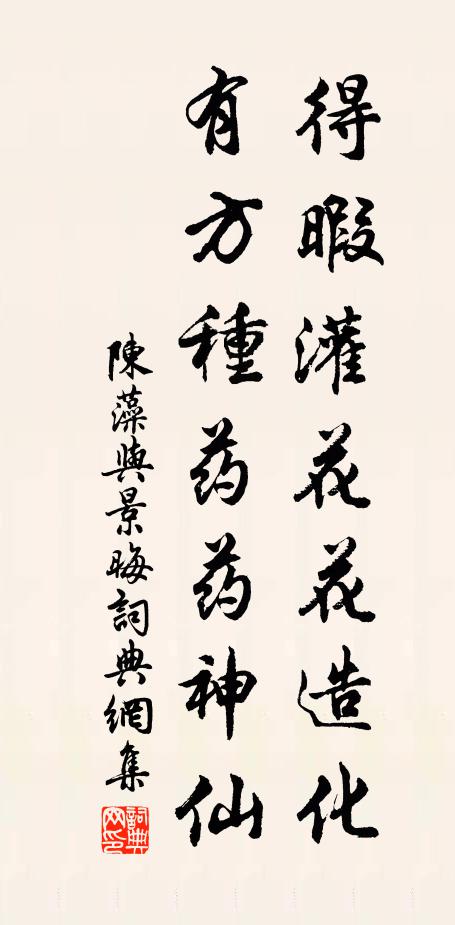 得暇灌花花造化
有方種药药神仙
陳藻與景晦詞典網集
詞典网印